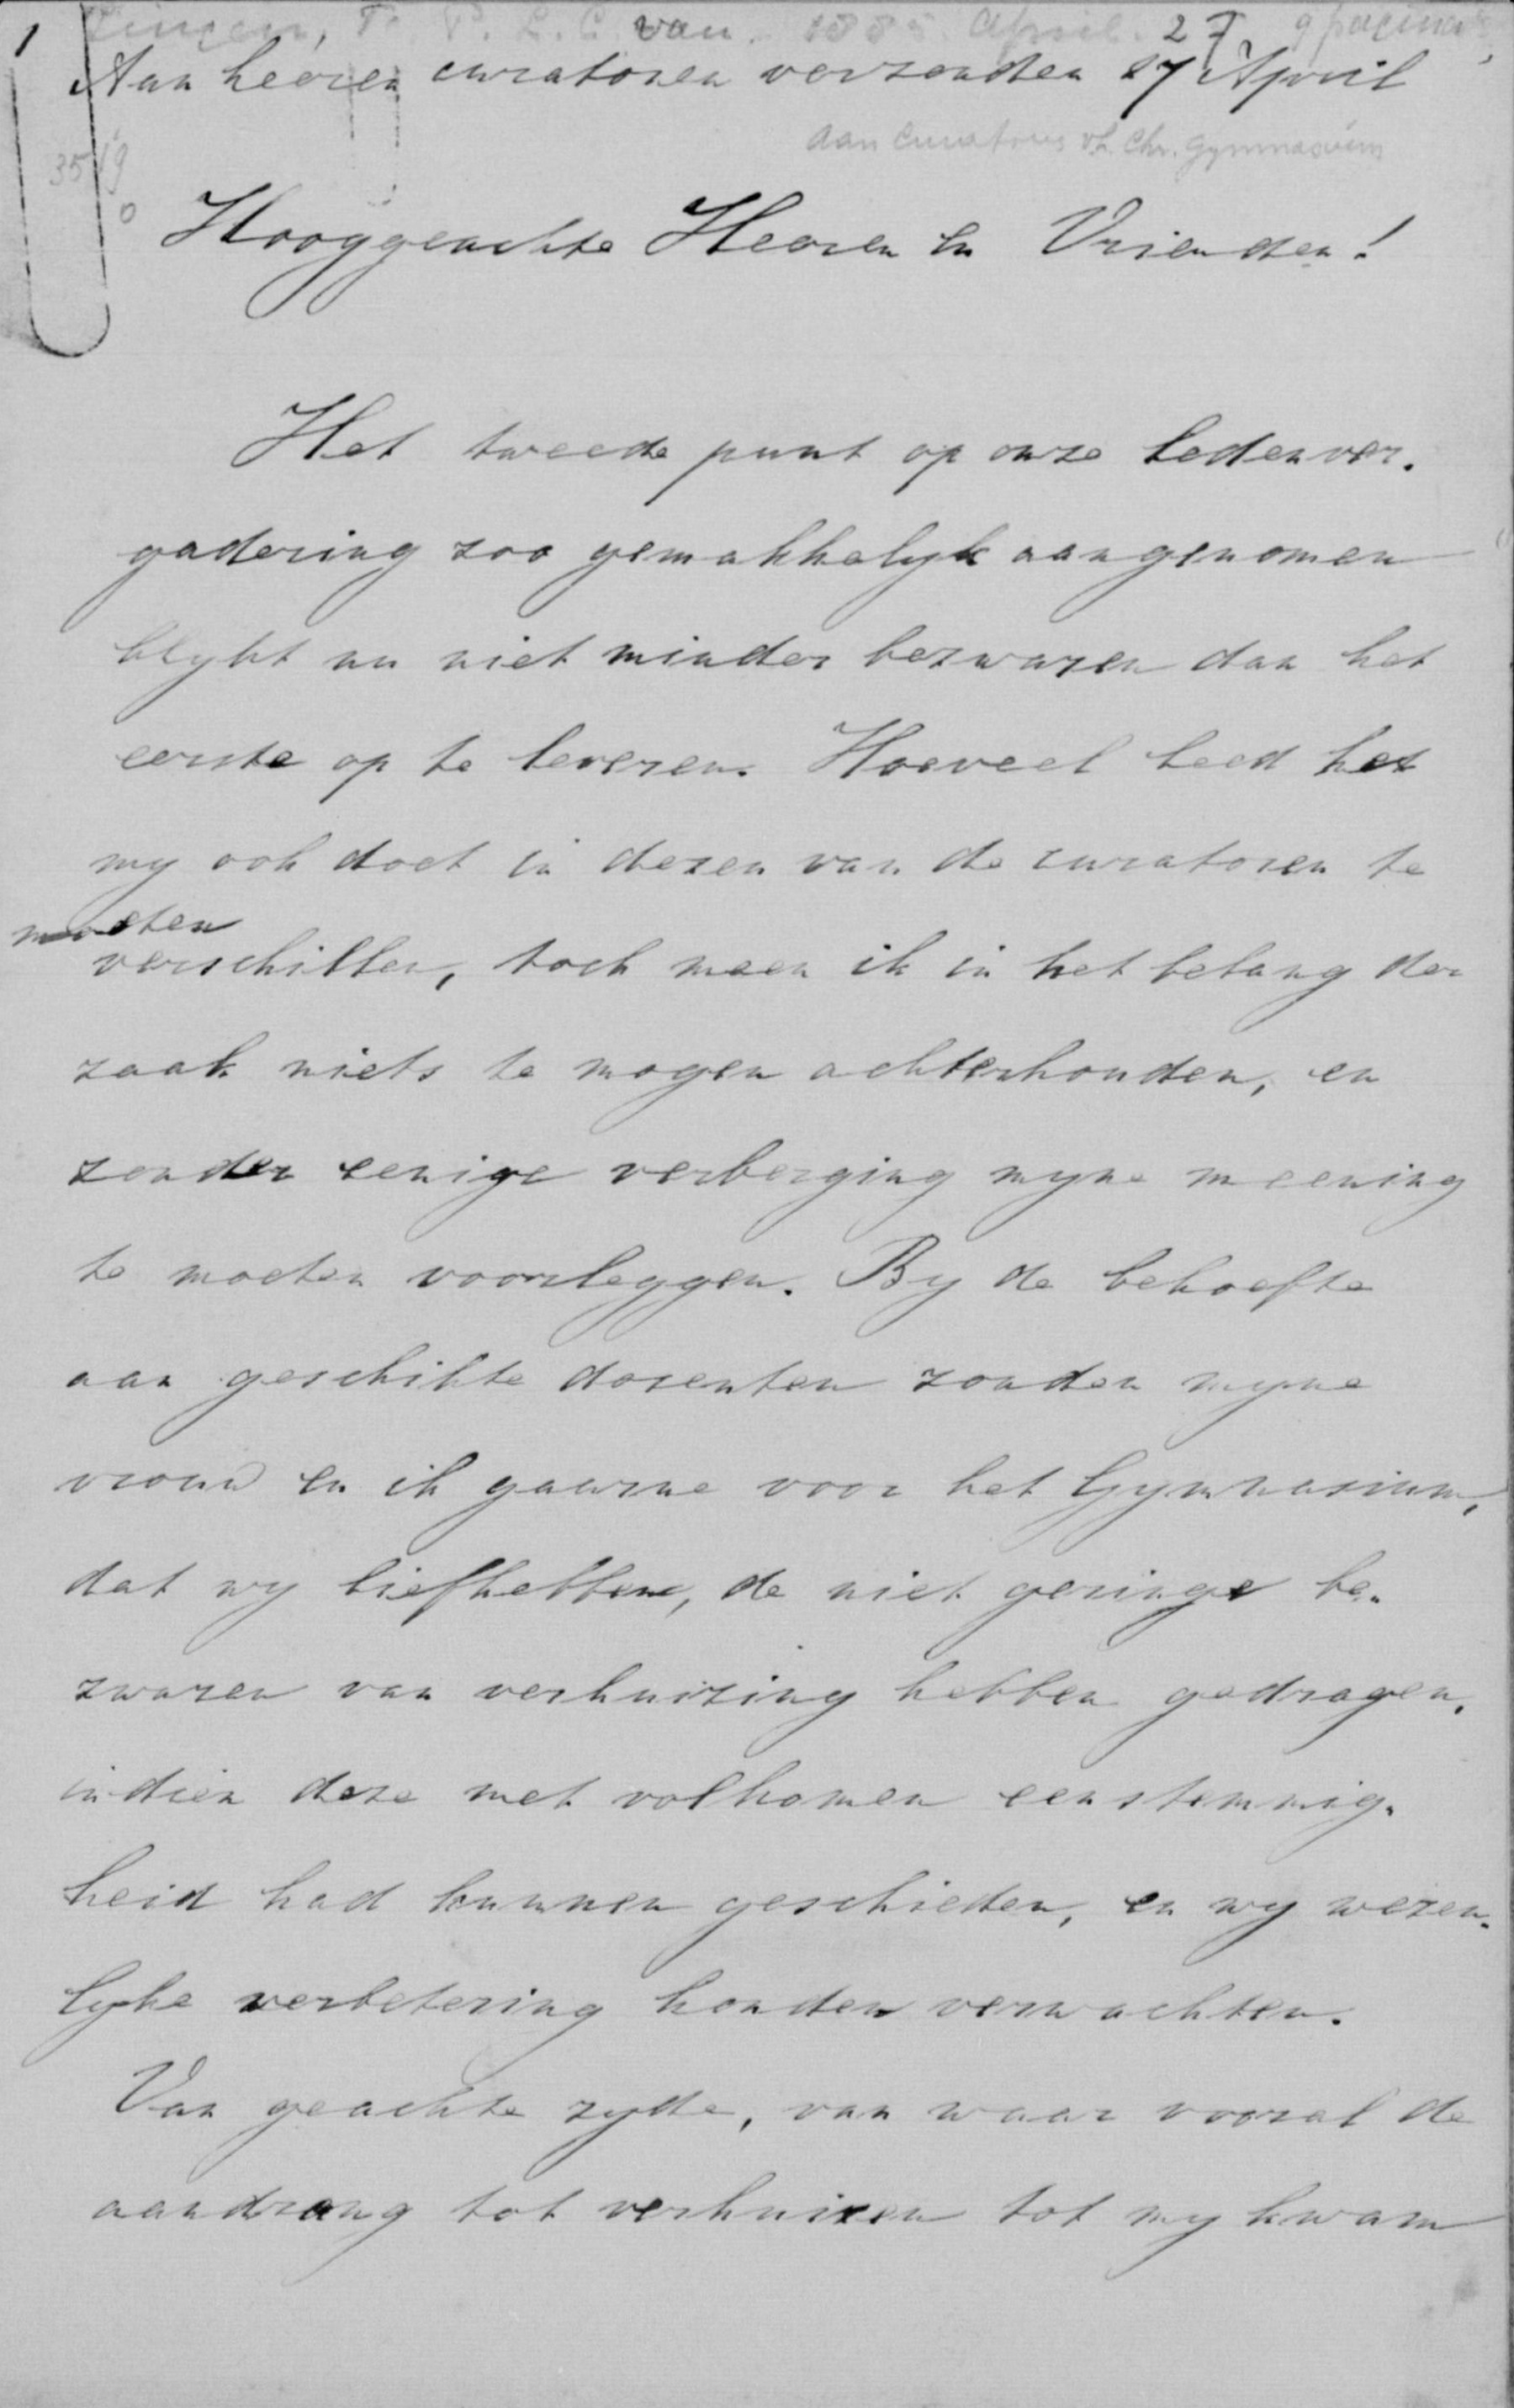 1
Lingen, F. P. L. C. van. 1885 April. 27. 9 pagina's
Aan heeren curatoren verzonden 27 April
aan Curatoren v/h. Chr. Gymnasium
3549
0
Hooggeachte Heeren en Vrienden!
Het tweede punt op onze ledenver-
gadering zoo gemakkelyk aangenomen
blykt nu niet minder bezwaren dan het
eerste op te leveren. Hoeveel leed het
my ook doet in dezen van de curatoren te
moeten
verschillen, toch meen ik in het belang der
zaak niets te mogen achterhouden, en
zonder eenige verberging myne meening
te moeten voorleggen. By de behoefte
aan geschikte docenten zouden myne
vrouw en ik gaarne voor het Gymnasium,
dat wy liefhebben, de niet geringe be-
zwaren van verhuizing hebben gedragen,
indien deze met volkomen eenstemmig-
heid had kunnen geschieden, en wy wezen-
lyke verbetering konden verwachten.
Van geachte zyde, van waar vooral de
aandrang tot verhuizen tot my kwam